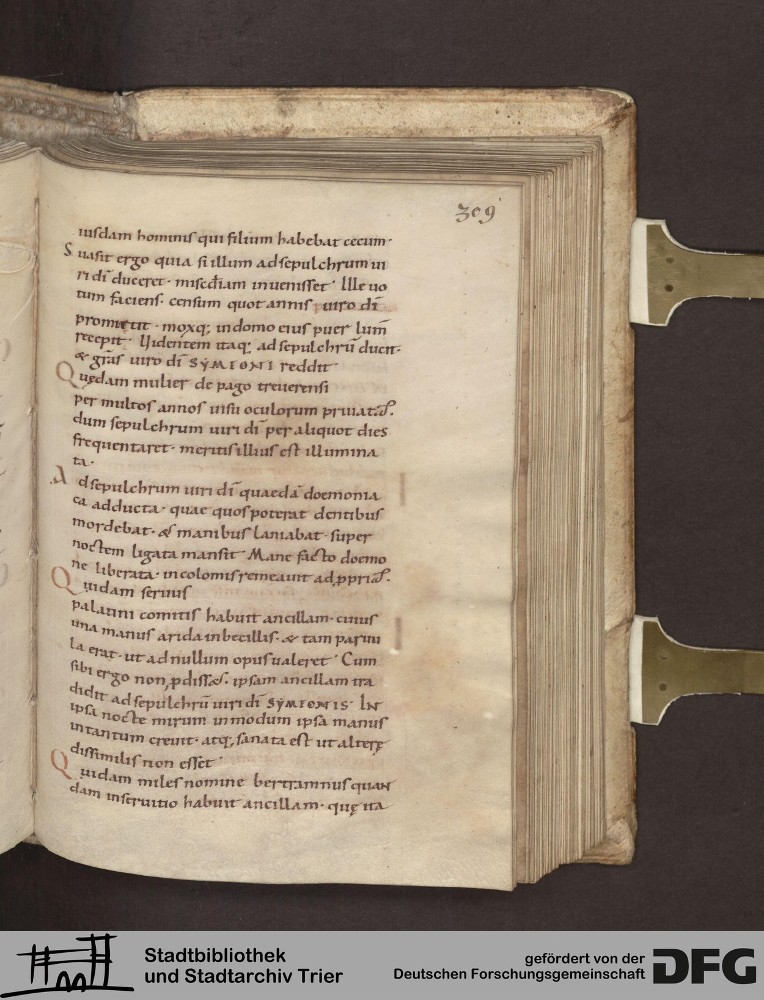 309
iusdam hominis qui filium habebat cecum·
Suasit ergo quia si illum ad sepulchrum ui
ri dī duceret· misc̄diam inuenisset· Ille uo
tum faciens· censum quot annis uiro dī
promittit· moxq; in domo eius puer lum̄
recepit· Uidentem itaq; ad sepulchrū ducit·
& grās uiro dī SYMEONI reddit
Quędam mulier de pago treuerensi
per multos annos uisu oculorum priuata·
dum sepulchrum uiri dī per aliquot dies
frequentaret· meritis illius est illumina
ta·
Ad sepulchrum uiri dī quaedā doemonia
ca adducta· quae quos poterat dentibus
mordebat· & manibus laniabat· super
noctem ligata mansit· Mane facto doemo
ne liberata· incolomis remeauit ad ꝓpria·
Quidam seruus
palatini comitis habuit ancillam· cuius
una manus arida inbecillis· & tam paruu
la erat· ut ad nullum opus ualeret· Cum
sibi ergo non ꝓdiss&· ipsam ancillam tra
didit ad sepulchrū uiri dī SYMEONIS· IN
ipsa nocte mirum in modum ipsa manus
in tantum creuit· atq; sanata est ut alterę
dissimilis non esset·
Quidam miles nomine bertramnus quan
dam in seruitio habuit ancillam· quę ita
Stadtbibliothek
und Stadtarchiv Trier
gefördert von der
Deutschen Forschungsgemeinschaft
DFG